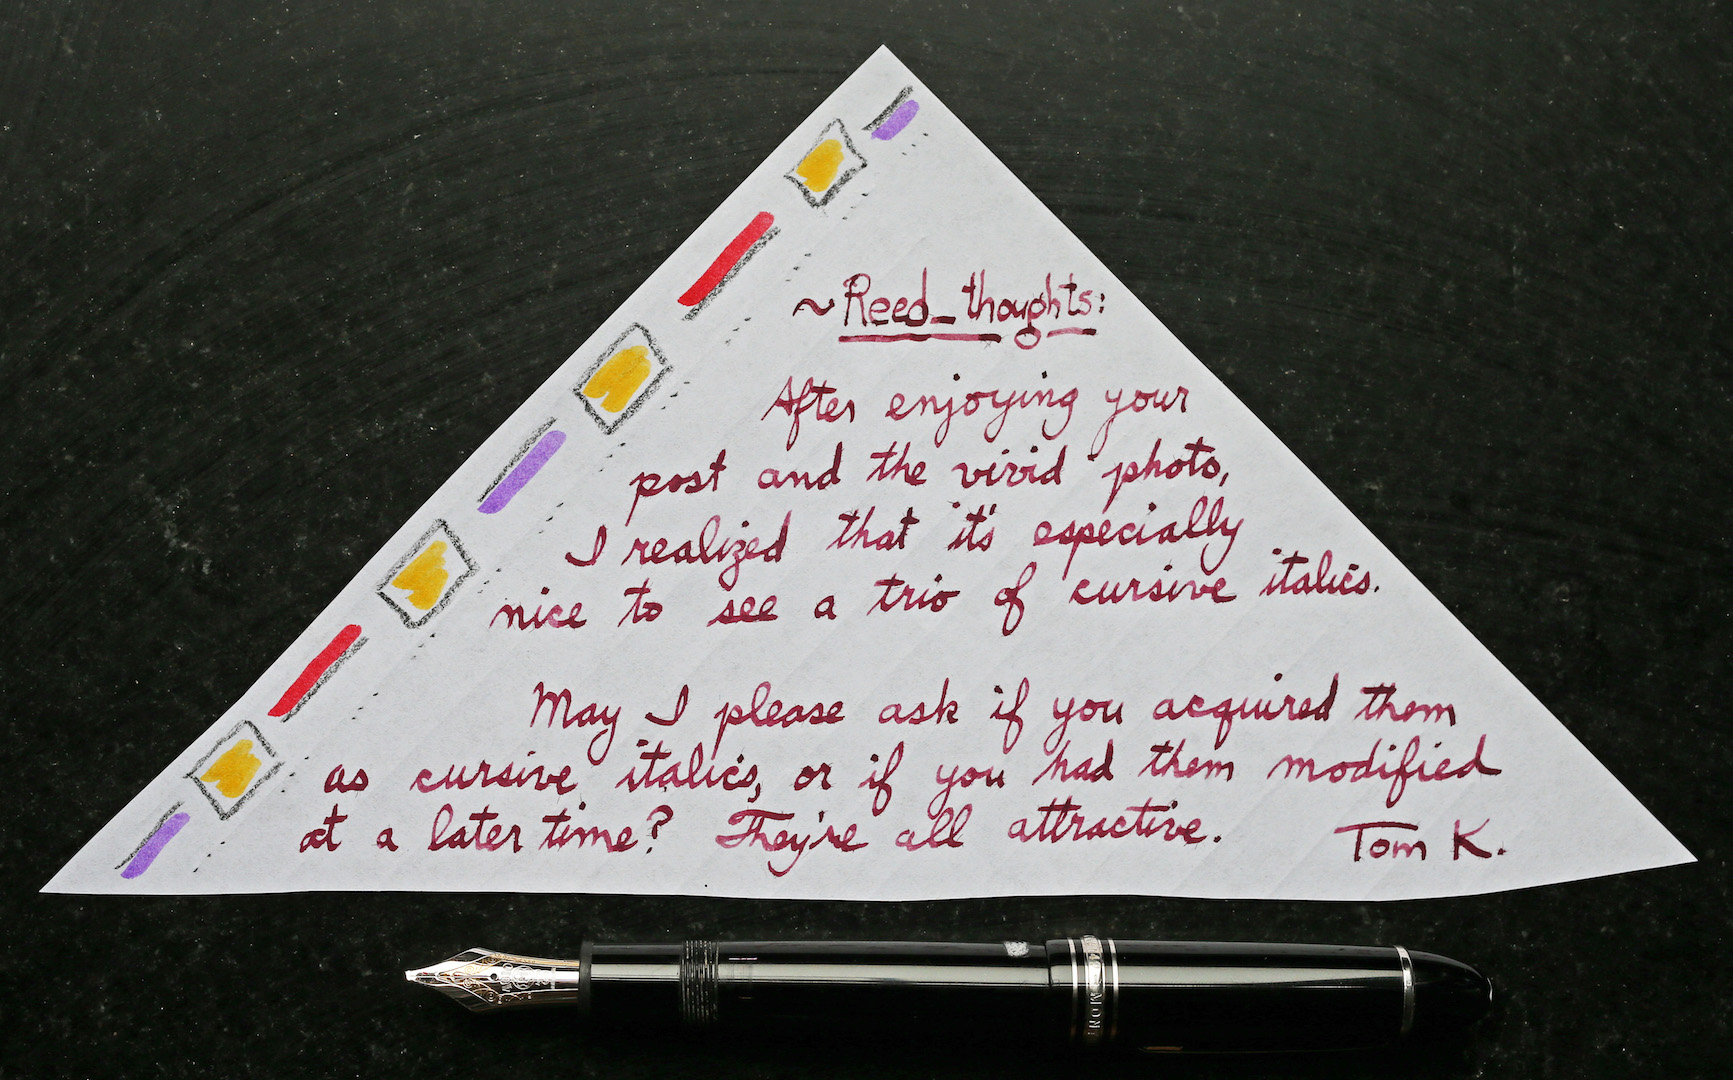 ~Reed_thoughts:
After enjoying your
post and the vivid photo,
I realized that it's especially
nice to see a trio of cursive italics.
May I please ask if you acquired them
as cursive italics, or if you had them modified
at a later time? They're all attractive.
Tom K.